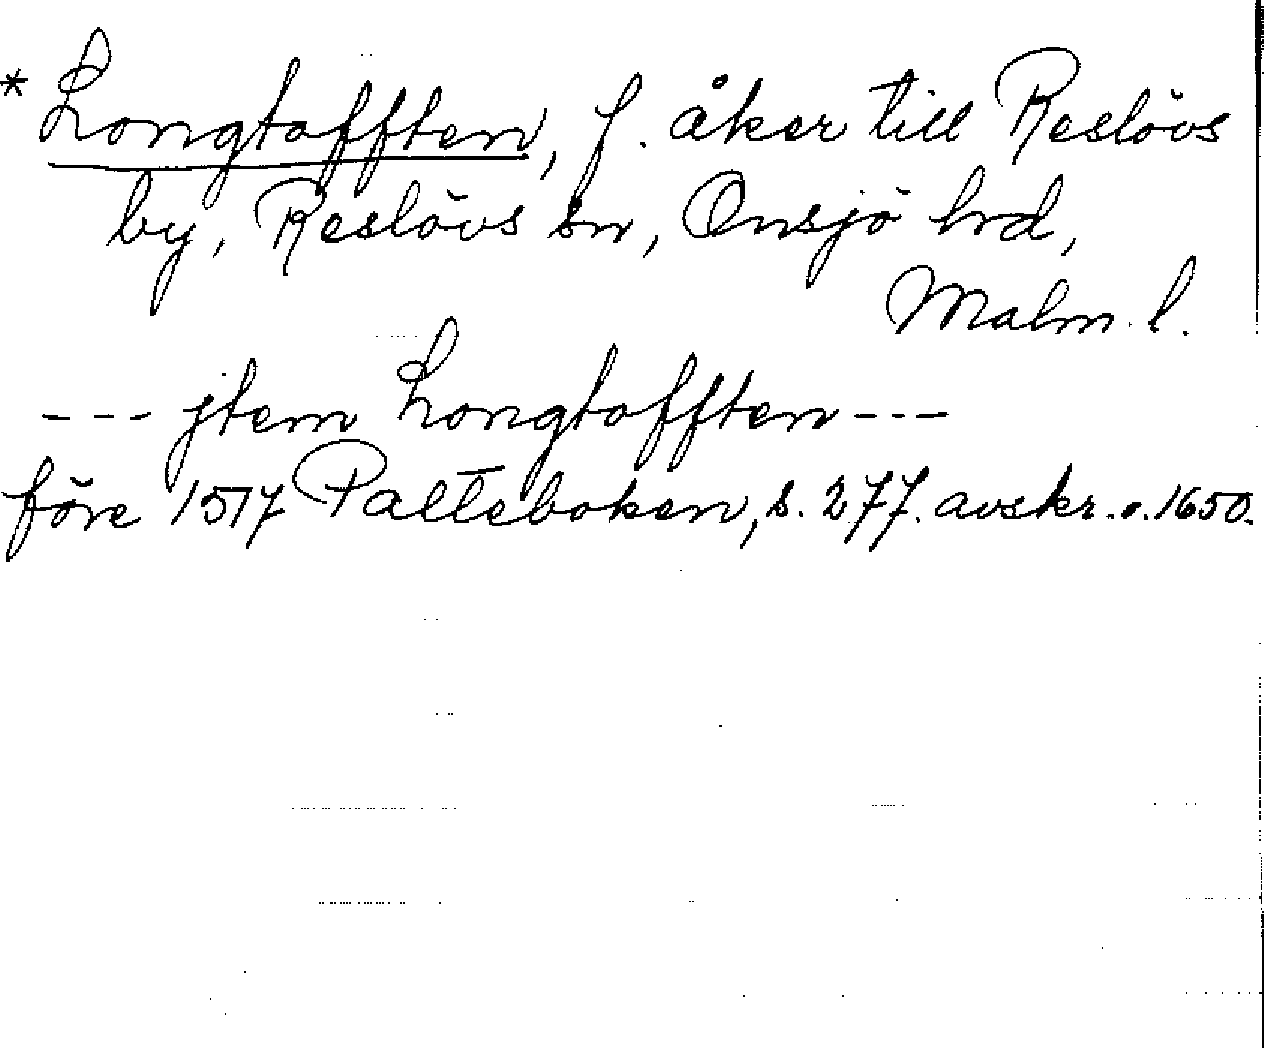 * Longtofften, f. åker till Reslövs
by, Reslövs sn, Onsjö hrd,
Malm. l.
--- jtem Longtofften ---
före 1517 Palteboken, s. 277. avskr. o. 1650.